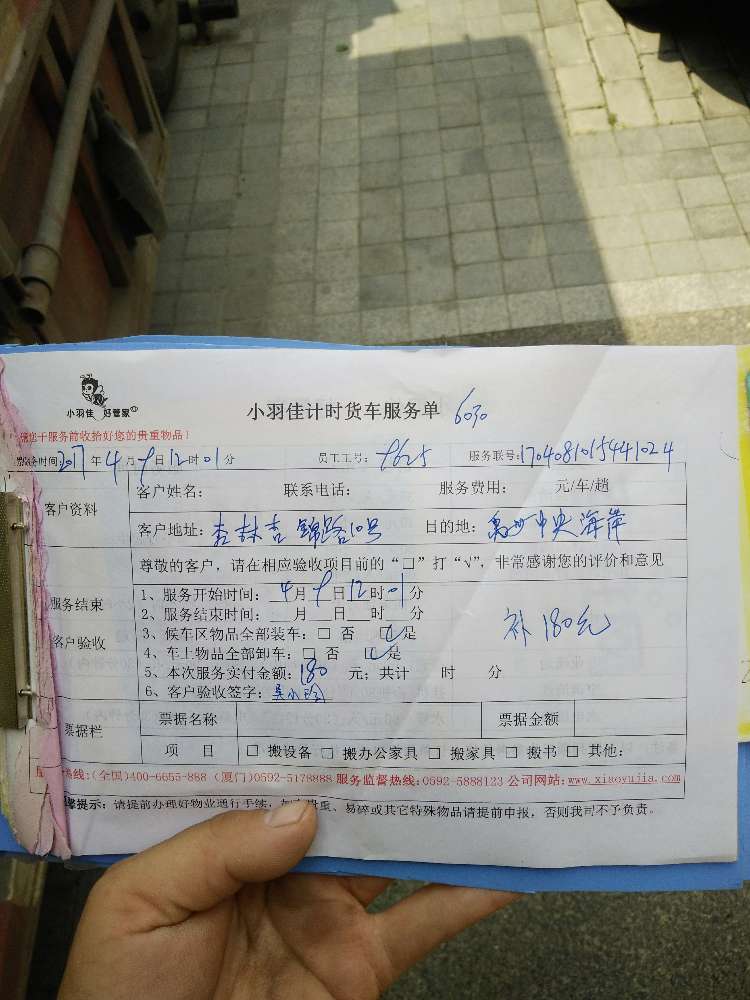 小羽佳 好管家
小羽佳计时货车服务单 6030
您干服务前收拾好您的贵重物品!
服务时间:2017年4月9日12时01分 员工工号:9625 服务联号:1704081015441024
客户资料
客户姓名: 联系电话: 服务费用: 元/车/趟
客户地址:杏林杏锦路10号 目的地:禹州中央海岸
尊敬的客户,请在相应验收项目前的“□”打“√”,非常感谢您的评价和意见
服务结束
客户验收
1、服务开始时间:4月9日12时01分
2、服务结束时间:__月__日__时__分
3、候车区物品全部装车:□ 否 ☑是
4、车上物品全部卸车:□ 否 ☑是
5、本次服务实付金额:180 元;共计 时 分
6、客户验收签字:吴小玲
补180元
票据栏
票据名称 票据金额
项 目 □ 搬设备 □ 搬办公家具 □ 搬家具 □ 搬书 □ 其他:
热线:(全国)400-6655-888 (厦门)0592-5178888 服务监督热线:0592-5888123 公司网站:www.xiaoyujia.com
馨提示:请提前办理好物业通行手续,如有贵重、易碎或其它特殊物品请提前申报,否则我司不予负责。